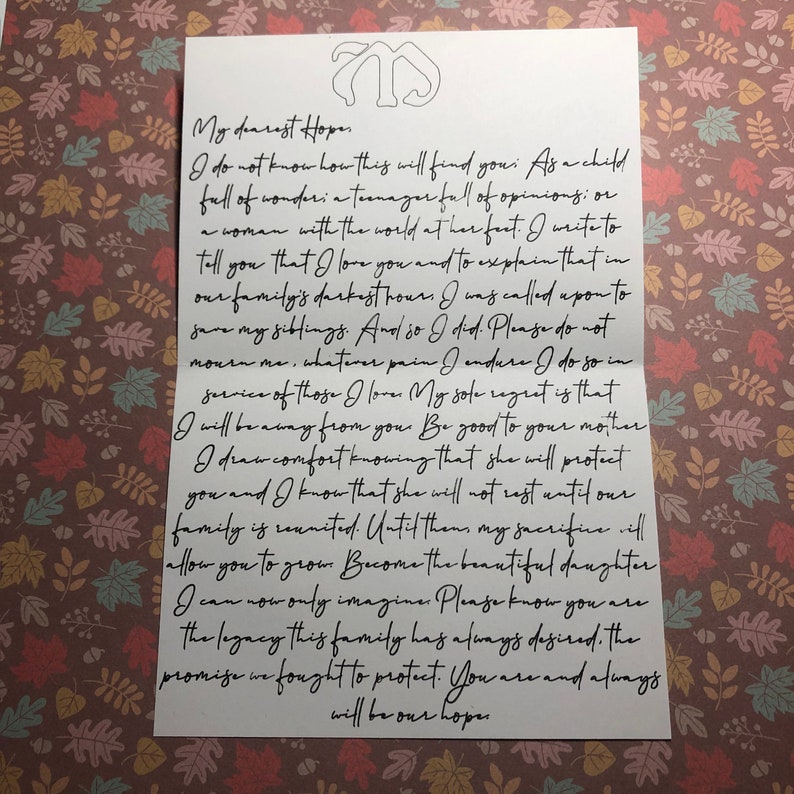 M
My dearest Hope,
I do not know how this will find you; As a child
full of wonder; a teenager full of opinions; or
a woman with the world at her feet. I write to
tell you that I love you and to explain that in
our family's darkest hour, I was called upon to
save my siblings. And so I did. Please do not
mourn me, whatever pain I endure I do so in
service of those I love. My sole regret is that
I will be away from you. Be good to your mother
I draw comfort knowing that she will protect
you and I know that she will not rest until our
family is reunited. Until then, my sacrifice will
allow you to grow. Become the beautiful daughter
I can now only imagine. Please know you are
the legacy this family has always desired, the
promise we fought to protect. You are and always
will be our hope.